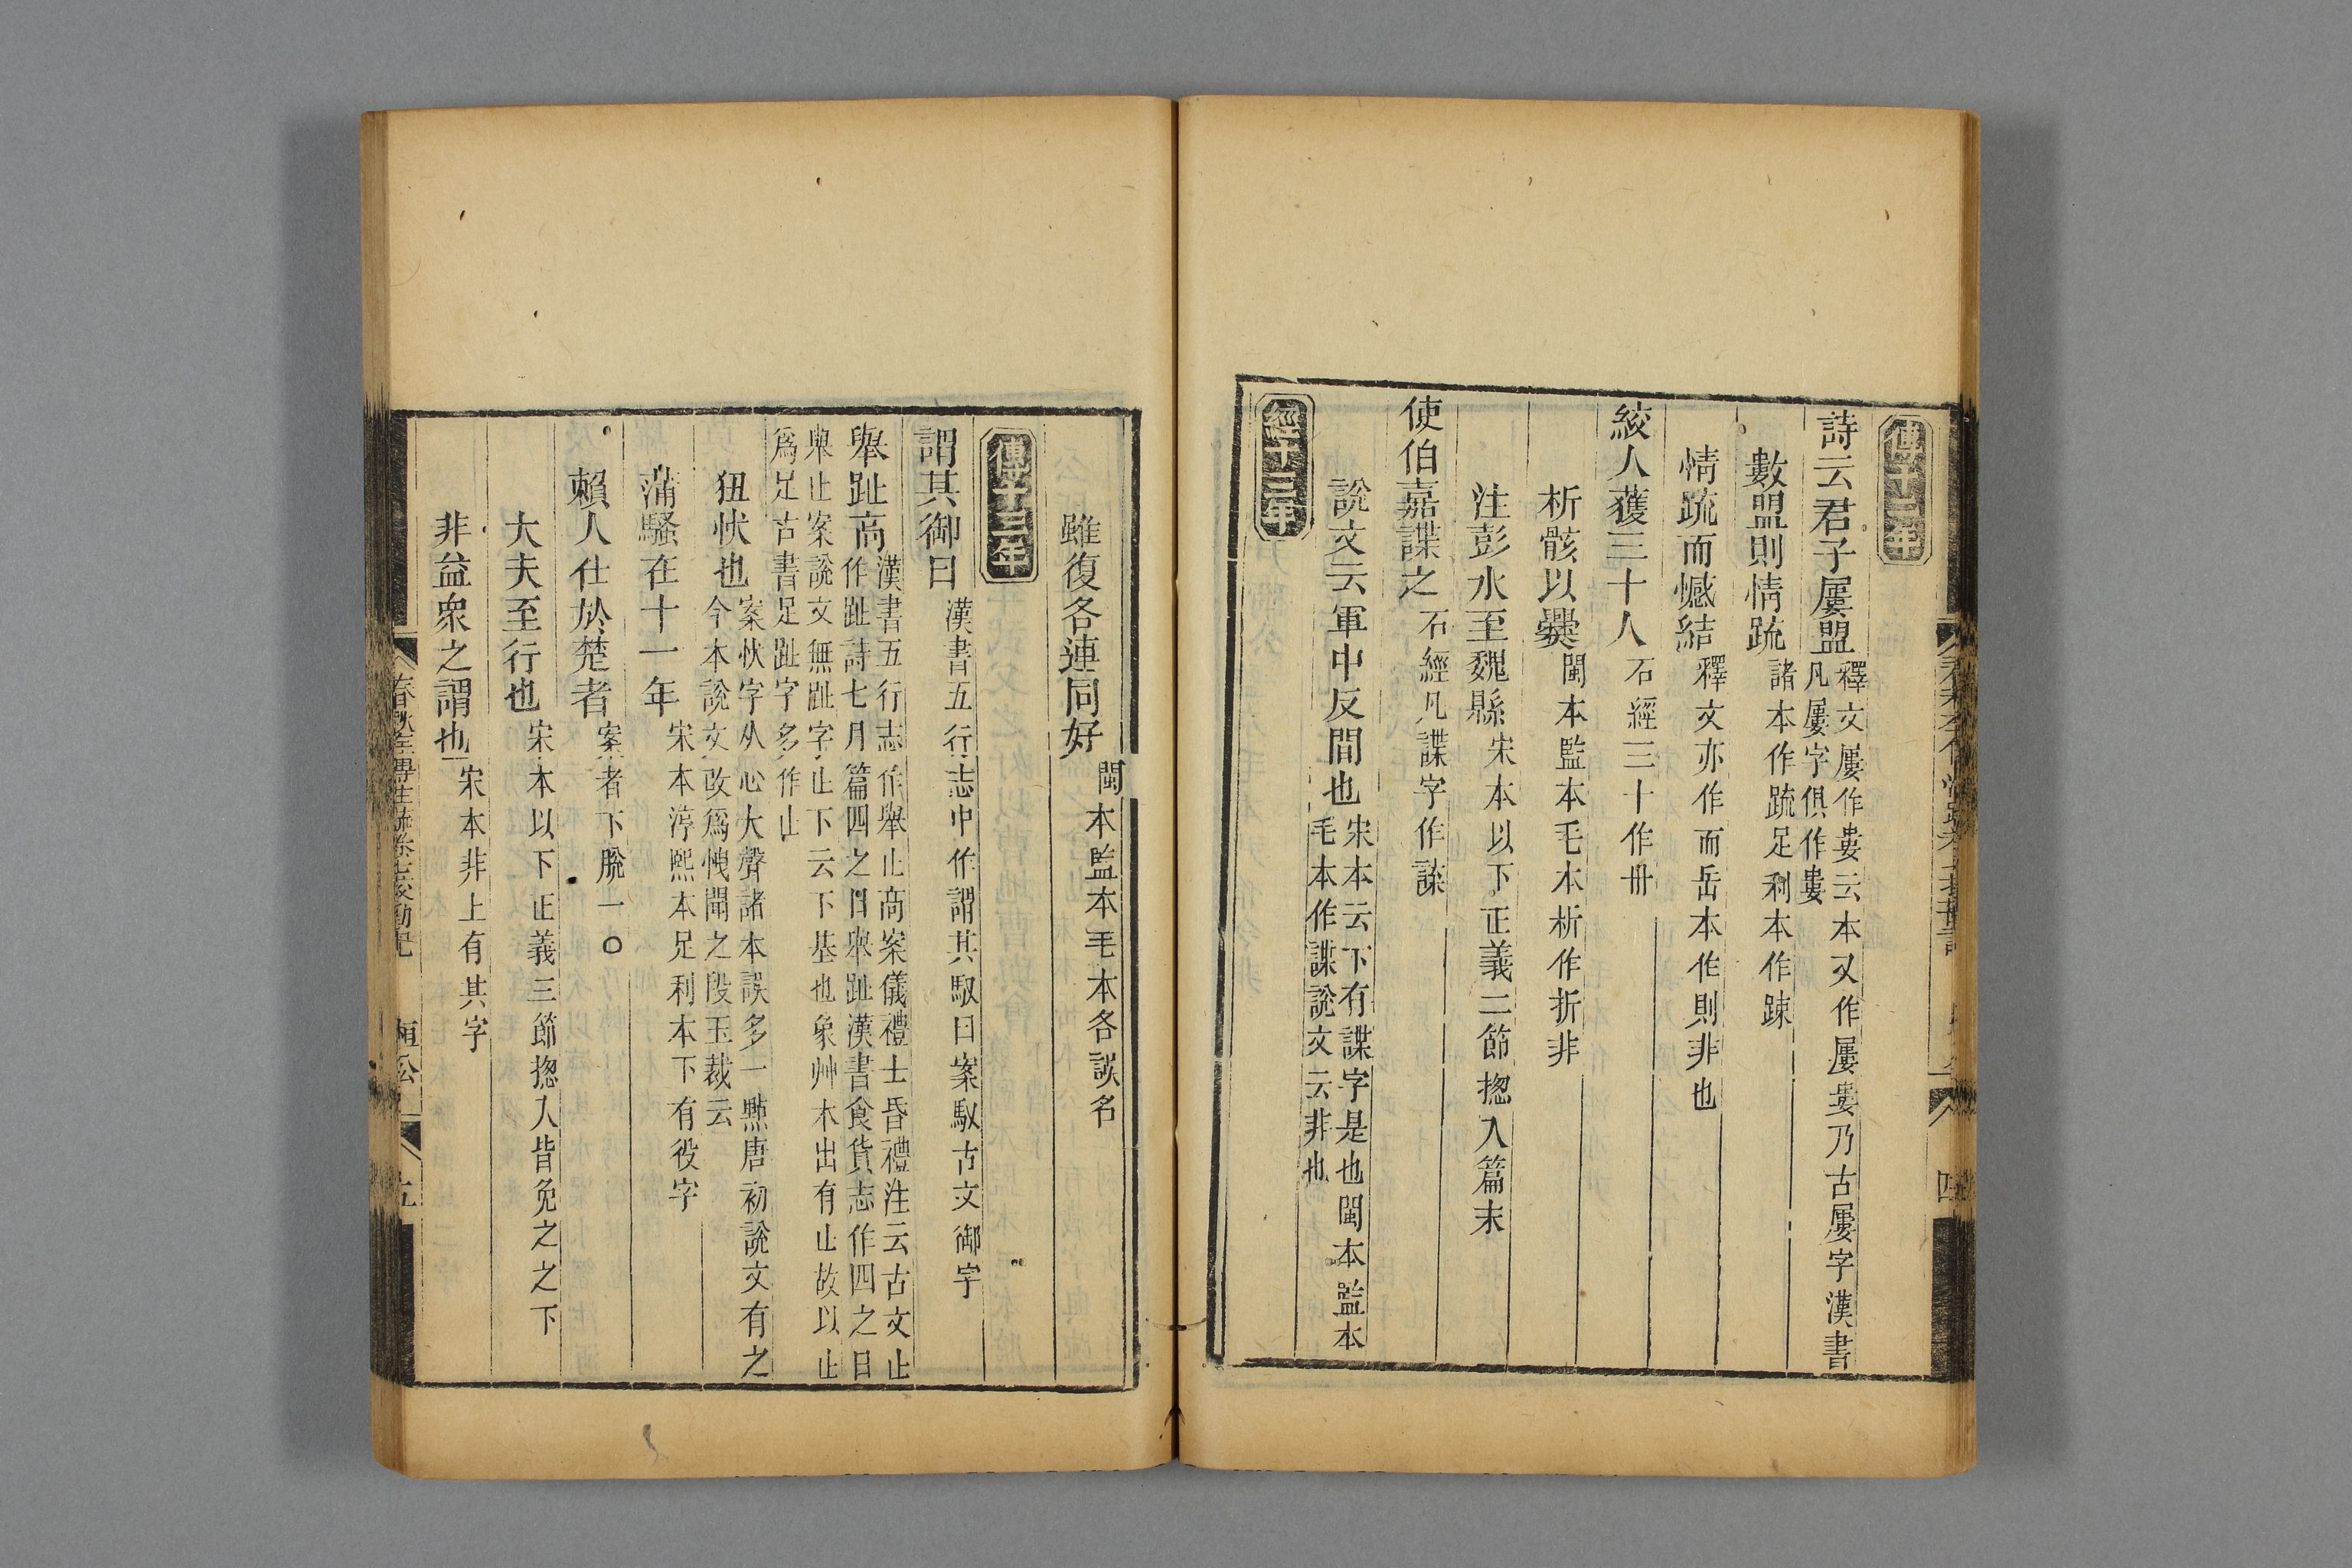 傳十二年
詩云君子屢盟釋文屢作婁云本又作屢婁乃古屢字漢書
凡屢字俱作婁
數盟則情疏諸本作疏足利本作踈
情疏而憾結釋文亦作而岳本作則非也
絞人獲三十人石經三十作卅
析骸以爨閩本監本毛本析作折非
注彭水至魏縣宋本以下正義二節揔入篇末
使伯嘉諜之石經凡諜字作諜
說文云軍中反間也宋本云下有諜字是也閩本監本
毛本作諜說文云非也
經十三年
雖復各連同好閩本監本毛本各誤名
傳十三年
謂其御曰漢書五行志中作謂其馭曰案馭古文御字
舉趾高漢書五行志作舉止高案儀禮士昏禮注云古文止
作趾詩七月篇四之日舉趾漢書食貨志作四之日
舉止案說文無趾字止下云下基也象艸木出有止故以止
爲足古書足趾字多作止
狃忕也案忕字从心大聲諸本誤多一㸃唐初說文有之
今本說文改爲愧閘之段玉裁云
蒲騷在十一年宋本淳熙本足利本下有役字
賴人仕於楚者案者下脫一○
大夫至行也宋本以下正義三節揔入皆免之之下
非益衆之謂也宋本非上有其字
春秋左傳注疏卷七校勘記 桓公 五